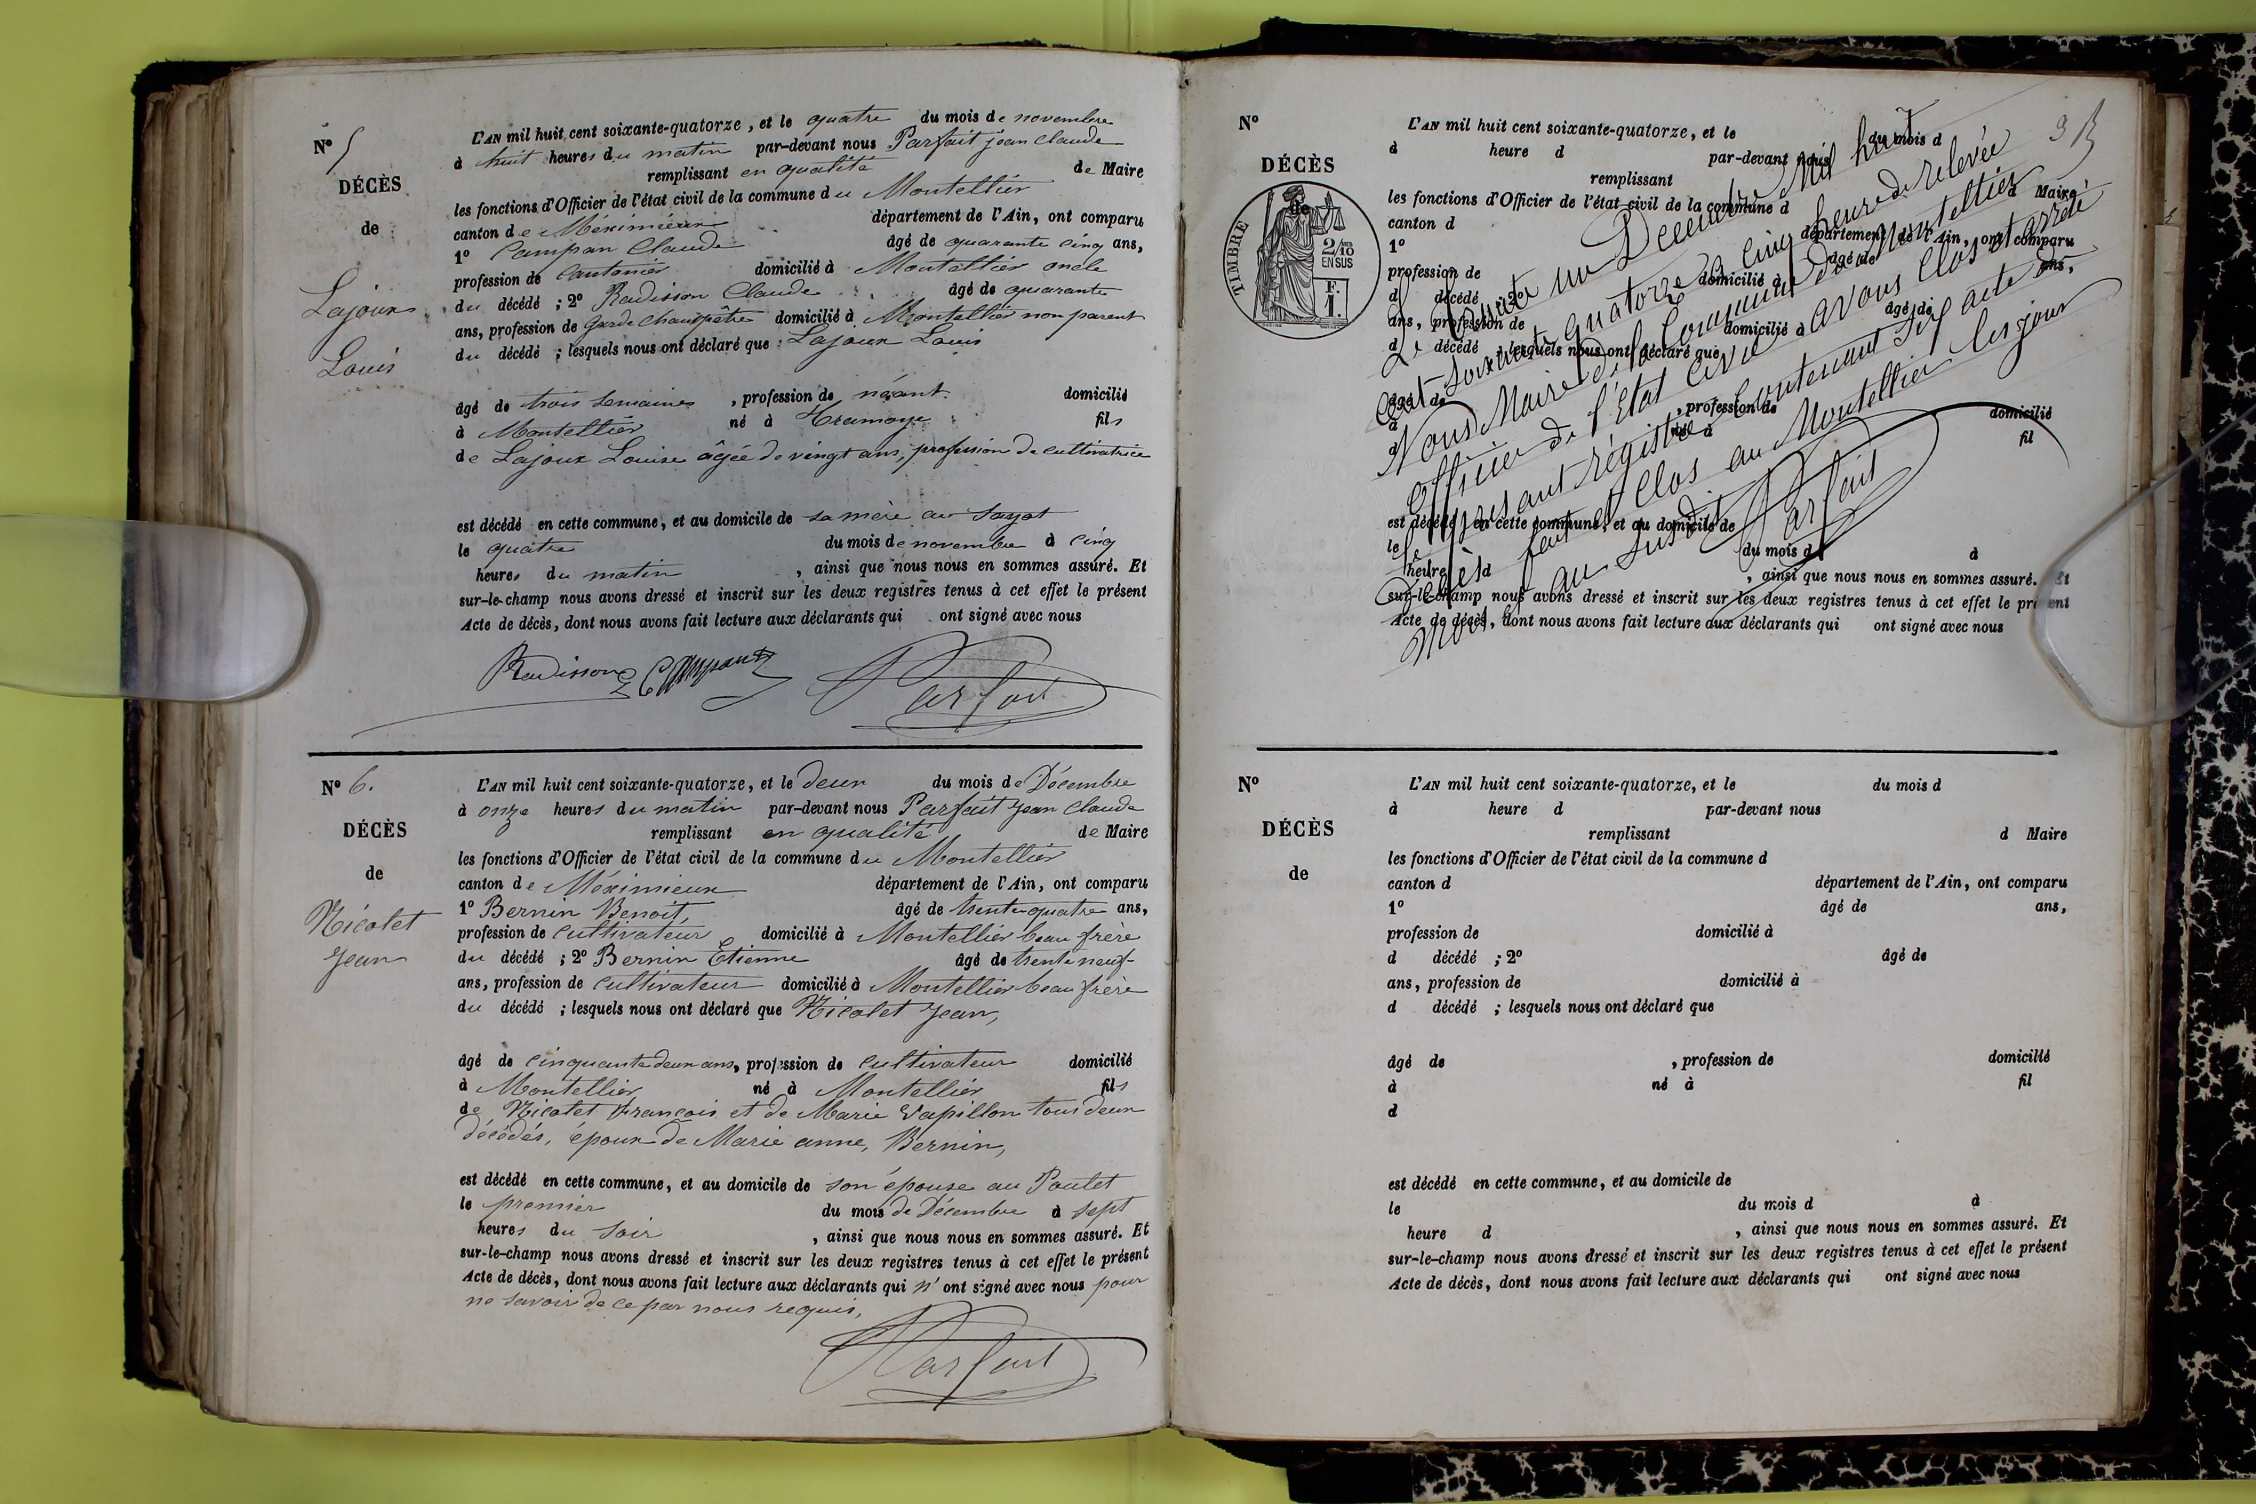 N° 5
DÉCÈS
de
Lajoux
Louis
L'AN mil huit cent soixante-quatorze, et le quatre du mois de novembre
à huit heures du matin par-devant nous Parfait jean Claude
remplissant en qualité de Maire
les fonctions d'Officier de l'état civil de la commune du Montellier
canton de Méximieux département de l'Ain, ont comparu
1° Campan Claude âgé de quarante cinq ans,
profession de Cantonier domicilié à Montellier oncle
du décédé ; 2° Radisson Claude âgé de quarante
ans, profession de garde Champêtre domicilié à Montellier non parent
du décédé ; lesquels nous ont déclaré que Lajoux Louis
âgé de trois semaines , profession de néant domicilié
à Montellier né à Tramoye fils
de Lajoux Louise âgée de vingt ans, profession de cultivatrice
est décédé en cette commune, et au domicile de sa mère au
le quatre du mois de novembre à cinq
heures du matin , ainsi que nous nous en sommes assuré. Et
sur-le-champ nous avons dressé et inscrit sur les deux registres tenus à cet effet le présent
Acte de décès, dont nous avons fait lecture aux déclarants qui ont signé avec nous
Radisson Campan Parfait
N° 6.
DÉCÈS
de
Nicolet
Jean
L'AN mil huit cent soixante-quatorze, et le deux du mois de Décembre
à onze heures du matin par-devant nous Parfait Jean Claude
remplissant en qualité de Maire
les fonctions d'Officier de l'état civil de la commune du Montellier
canton de Méximieux département de l'Ain, ont comparu
1° Bernin Benoit, âgé de trente quatre ans,
profession de cultivateur domicilié à Montellier beau frère
du décédé ; 2° Bernin Etienne âgé de trente neuf
ans, profession de cultivateur domicilié à Montellier beau frère
du décédé ; lesquels nous ont déclaré que Nicolet Jean,
âgé de cinquante deux ans, profession de cultivateur domicilié
à Montellier né à Montellier fils
de Nicolet François et de Marie Vapillon tous deux
décédés, époux de Marie anne, Bernin,
est décédé en cette commune, et au domicile de son épouse au Poulet
le premier du mois de Décembre à sept
heures du soir , ainsi que nous nous en sommes assuré. Et
sur-le-champ nous avons dressé et inscrit sur les deux registres tenus à cet effet le présent
Acte de décès, dont nous avons fait lecture aux déclarants qui n' ont signé avec nous pour
ne savoir de ce par nous requis,
Parfait
N°
DÉCÈS
de
TIMBRE
2/10
EN SUS
F.
1.
L'AN mil huit cent soixante-quatorze, et le du mois d
à heure d par-devant nous
remplissant d Maire
les fonctions d'Officier de l'état civil de la commune d
canton d département de l'Ain, ont comparu
1° âgé de ans,
profession de domicilié à
d décédé ; 2° âgé de
ans, profession de domicilié à
d décédé ; lesquels nous ont déclaré que
âgé de , profession de domicilié
à né à fil
d
est décédé en cette commune, et au domicile de
le du mois d à
heure d , ainsi que nous nous en sommes assuré. Et
sur-le-champ nous avons dressé et inscrit sur les deux registres tenus à cet effet le présent
Acte de décès, dont nous avons fait lecture aux déclarants qui ont signé avec nous
Le trente un Décembre Mil huit
cent soixante quatorze à cinq heure de relevée
Nous Maire de la Commune de Montellier
officier de l'Etat Civil avons Clos et arrêté
le présant régistre Contenant six acte de
décès fait et Clos au Montellier les jour
mois et au susdit Parfait
N°
DÉCÈS
de
L'AN mil huit cent soixante-quatorze, et le du mois d
à heure d par-devant nous
remplissant d Maire
les fonctions d'Officier de l'état civil de la commune d
canton d département de l'Ain, ont comparu
1° âgé de ans,
profession de domicilié à
d décédé ; 2° âgé de
ans, profession de domicilié à
d décédé ; lesquels nous ont déclaré que
âgé de , profession de domicilié
à né à fil
d
est décédé en cette commune, et au domicile de
le du mois d à
heure d , ainsi que nous nous en sommes assuré. Et
sur-le-champ nous avons dressé et inscrit sur les deux registres tenus à cet effet le présent
Acte de décès, dont nous avons fait lecture aux déclarants qui ont signé avec nous